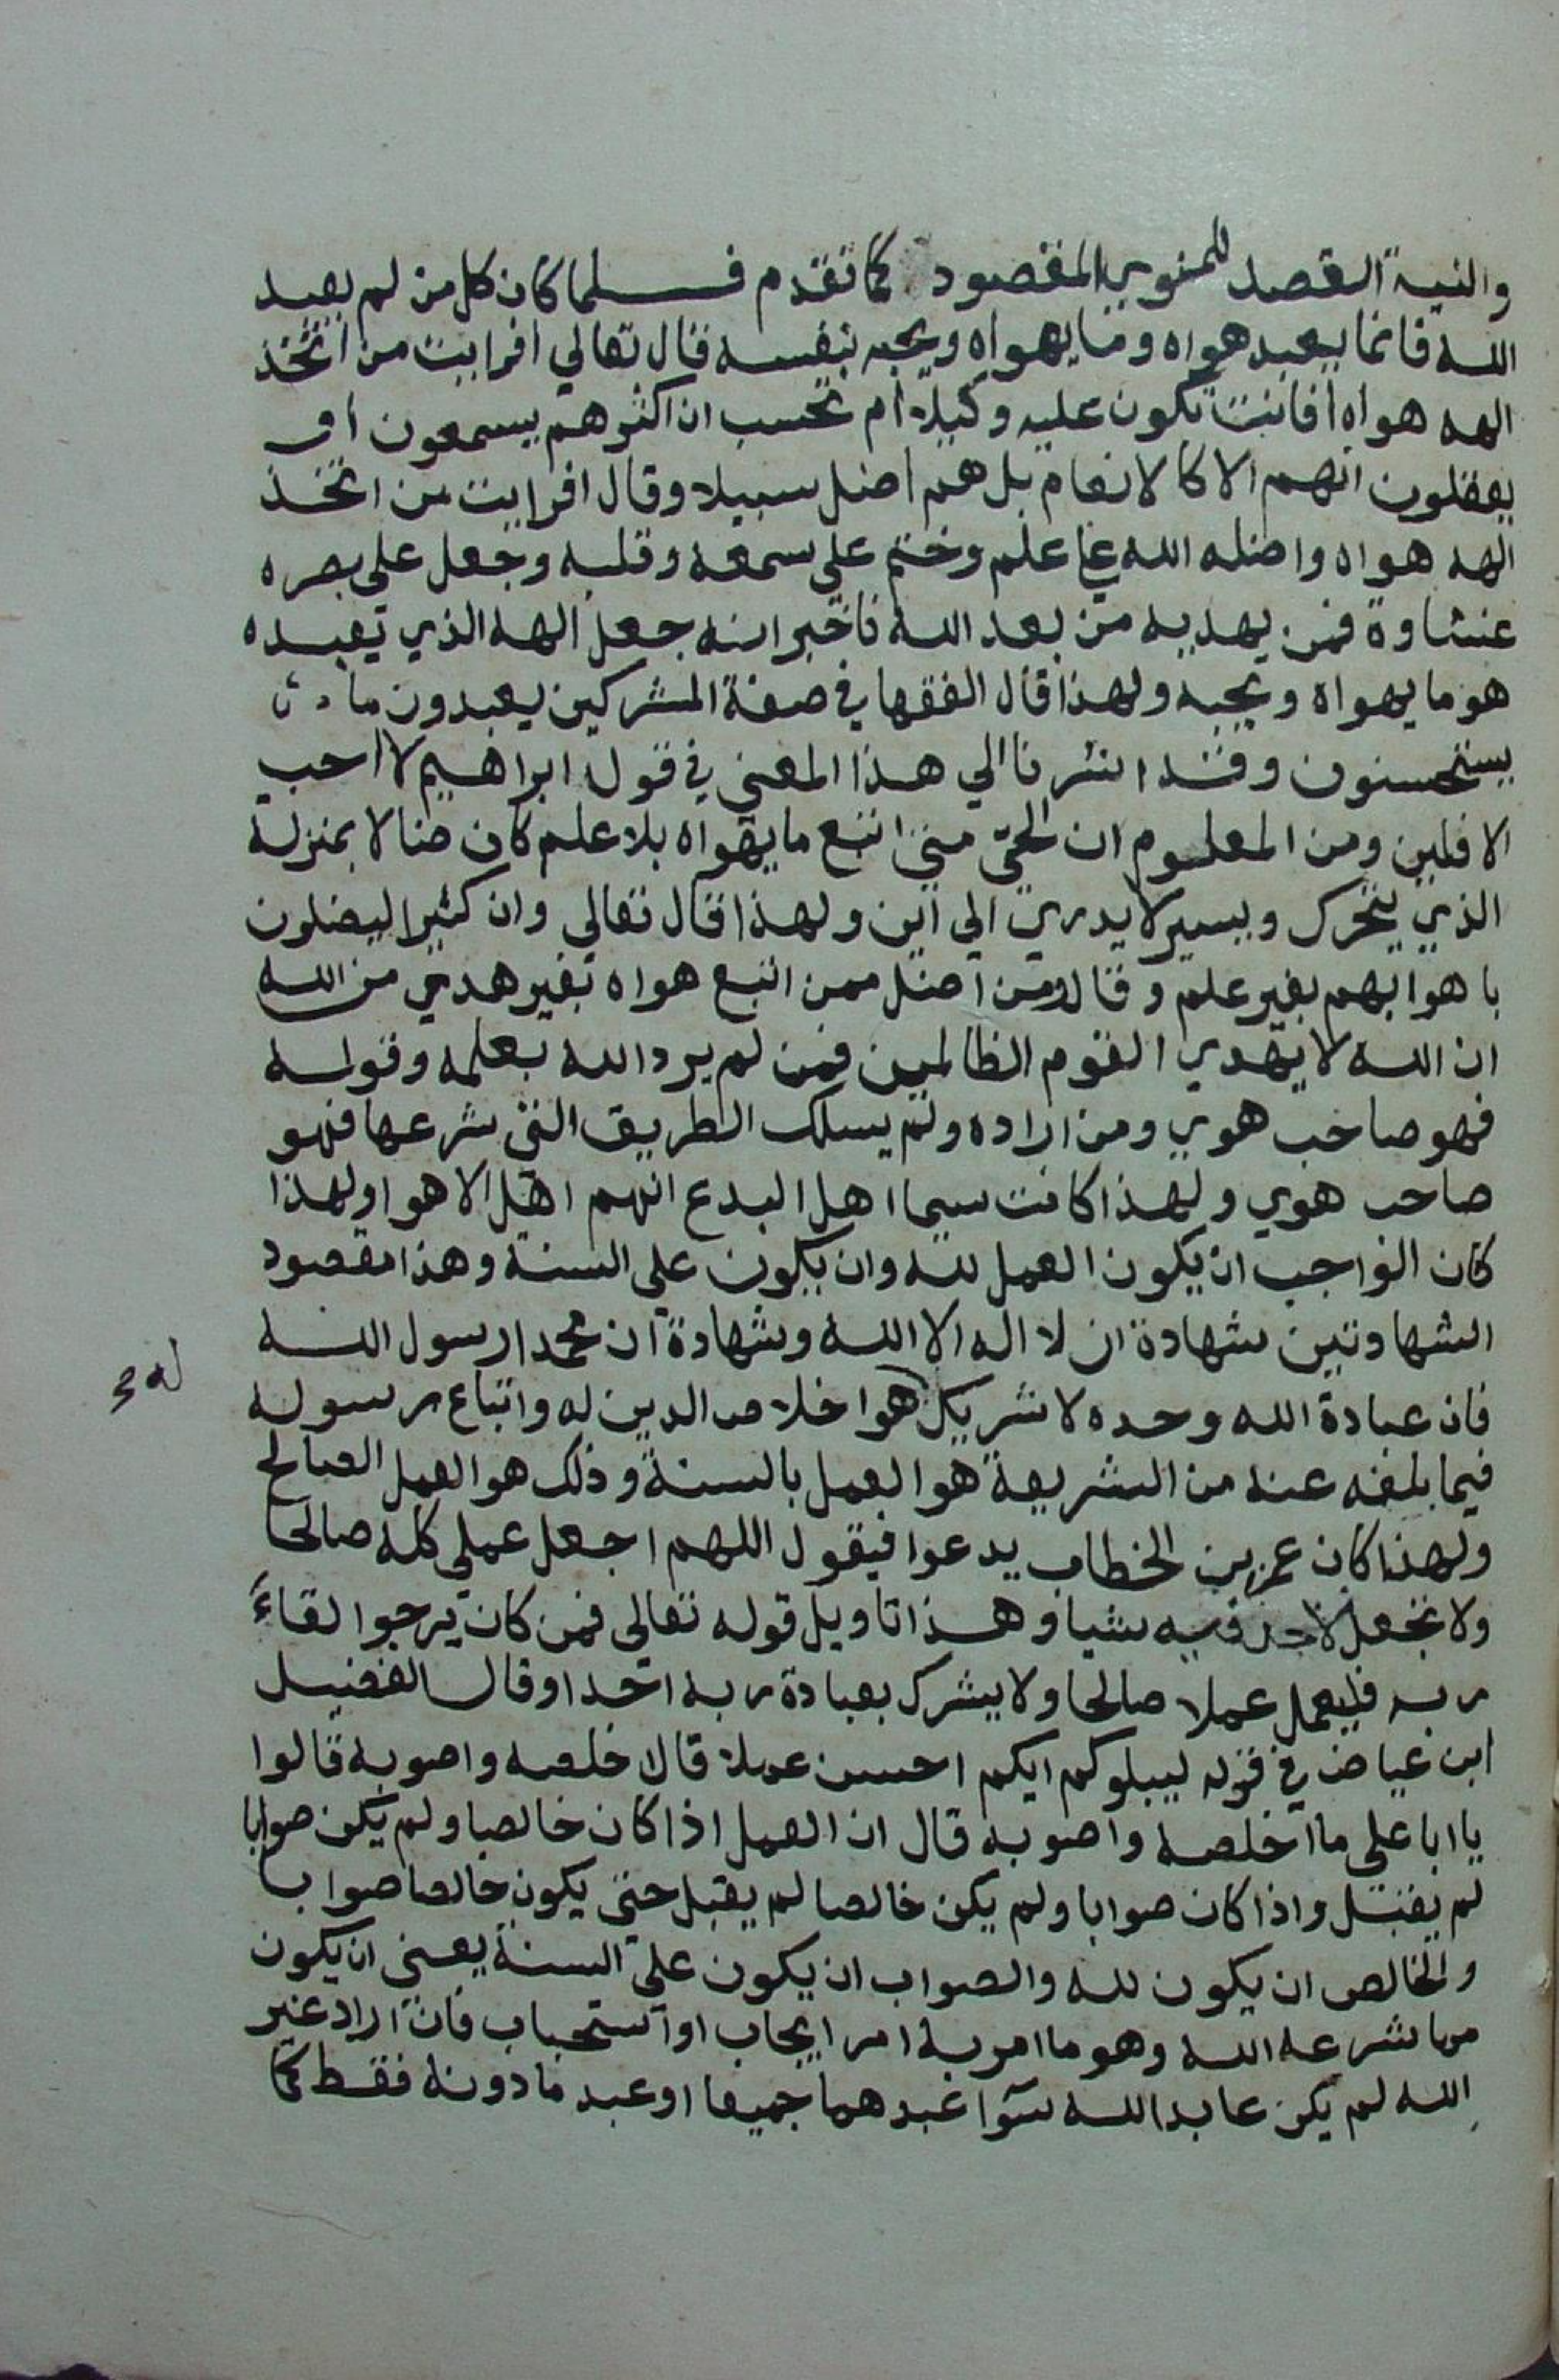 والنية القصد للمنوي المقصود كما تقدم فلما كان كل من لم يعبد
الله فانما يعبد هواه وما يهواه ويحبه بنفسه قال تعالي افرايت من اتخذ
الهه هواه افانت تكون عليه وكيلا ام تحسب ان اكثرهم يسمعون او
يعقلون انهم الا كالانعام بل هم اضل سبيلا وقال افرايت من اتخذ
الهه هواه واضله الله علي علم وختم علي سمعه وقلبه وجعل علي بصره
غشاوة فمن يهديه من بعد الله فاخبر انه جعل الهه الذي يعبده
هو ما يهواه ويحبه ولهذا قال الفقها في صفة المشركين يعبدون ما
يستحسنون وقد اشرنا الي هذا المعني في قول ابراهيم لا احب
الافلين ومن المعلوم ان الحي متي اتبع ما يهواه بلا علم كان ضالا بمنزلة
الذي يتحرك ويسير لا يدري الي اين ولهذا قال تعالي وان كثيرا ليضلون
باهوايهم بغير علم وقال ومن اضل ممن اتبع هواه بغير هدي من الله
ان الله لا يهدي القوم الظالمين فمن لم يرد الله بعلمه وقوله
فهو صاحب هوي ومن اراده ولم يسلك الطريق التي شرعها فهو
صاحب هوي ولهذا كانت سيما اهل البدع انهم اهل الاهوا ولهذا
كان الواجب ان يكون العمل لله وان يكون علي السنة وهذا مقصود
الشهادتين شهادة ان لا اله الا الله وشهادة ان محمدا رسول الله
فان عبادة الله وحده لا شريك هو اخلاص الدين له واتباع رسوله
له صح
فيما بلغه عنه من الشريعة هو العمل بالسنة وذلك هو العمل الصالح
ولهذا كان عمر بن الخطاب يدعوا فيقول اللهم اجعل عملي كله صالحا
ولا تجعل لاحد فيه شيا وهذا تاويل قوله تعالي فمن كان يرجوا لقاء
ربه فليعمل عملا صالحا ولا يشرك بعبادة ربه احدا وقال الفضيل
ابن عياض في قوله ليبلوكم ايكم احسن عملا قال اخلصه واصوبه قالوا
يا ابا علي ما اخلصه واصوبه قال ان العمل اذا كان خالصا ولم يكن صوابا
لم يقبل واذا كان صوابا ولم يكن خالصا لم يقبل حتي يكون خالصا صوابا
والخالص ان يكون لله والصواب ان يكون علي السنة يعني ان يكون
مما شرعه الله وهو ما امر به امر ايجاب او استحباب فان اراد غير
الله لم يكن عابدا لله سوا عبدهما جميعا او عبد ما دونه فقط كما